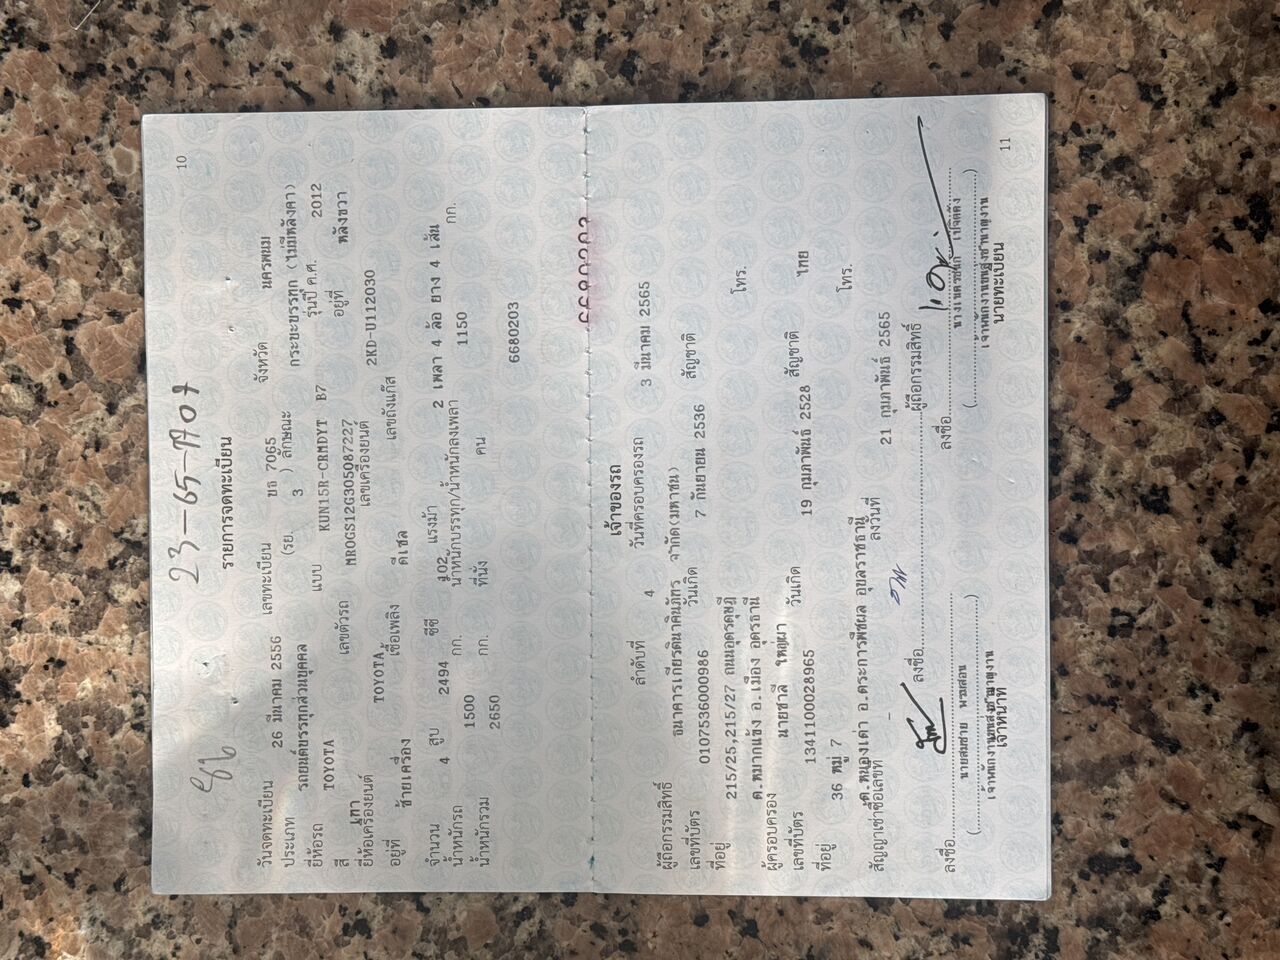 10
23-65-1707
รายการจดทะเบียน
วันจดทะเบียน 26 มีนาคม 2556 เลขทะเบียน ยธ 7065 จังหวัด นครพนม
ประเภท รถยนต์บรรทุกส่วนบุคคล (รย. 3 ) ลักษณะ กระบะบรรทุก (ไม่มีหลังคา)
ยี่ห้อรถ TOYOTA แบบ KUN15R-CRMDYT B7 รุ่นปี ค.ศ. 2012
สี เทา เลขตัวรถ MROGS12G305087227 อยู่ที่ หลังขวา
ยี่ห้อเครื่องยนต์ TOYOTA เลขเครื่องยนต์ 2KD-U112030
อยู่ที่ ซ้ายเครื่อง เชื้อเพลิง ดีเซล เลขถังแก๊ส
จำนวน 4 สูบ 2494 ซีซี 102 แรงม้า 2 เพลา 4 ล้อ ยาง 4 เส้น
น้ำหนักรถ 1500 กก. น้ำหนักบรรทุก/น้ำหนักลงเพลา 1150 กก.
น้ำหนักรวม 2650 กก. ที่นั่ง คน
6680203
6680203
เจ้าของรถ
ลำดับที่ 4 วันที่ครอบครองรถ 3 มีนาคม 2565
ผู้ถือกรรมสิทธิ์ ธนาคารเกียรตินาคินภัทร จำกัด(มหาชน)
เลขที่บัตร 0107536000986 วันเกิด 7 กันยายน 2536 สัญชาติ
ที่อยู่ 215/25,215/27 ถนนอุดรดุษฎี โทร.
ต.หมากแข้ง อ.เมือง อุดรธานี
ผู้ครอบครอง นายชาลี ใหญ่ผา
เลขที่บัตร 1341100028965 วันเกิด 19 กุมภาพันธ์ 2528 สัญชาติ ไทย
ที่อยู่ 36 หมู่ 7 โทร.
ต.หนองเต่า อ.ตระการพืชผล อุบลราชธานี
สัญญาเช่าซื้อเลขที่ - ลงวันที่ 21 กุมภาพันธ์ 2565
ลงชื่อ ผู้ถือกรรมสิทธิ์
ลงชื่อ ลงชื่อ
( นายสมชาย ) ( )
เจ้าหน้าที่ นายทะเบียน
11